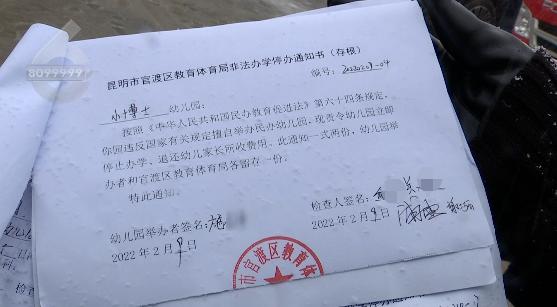 8099999
昆明市官渡区教育体育局非法办学停办通知书（存根）
编号：20220209-04
小博士 幼儿园：
按照《中华人民共和国民办教育促进法》第六十四条规定，
你园违反国家有关规定擅自举办民办幼儿园，现责令幼儿园立即
停止办学，退还幼儿家长所收费用。此通知一式两份，幼儿园举
办者和官渡区教育体育局各留存一份。
特此通知。
幼儿园举办者签名：
检查人签名：
2022 年 2 月 9 日
2022 年 2 月 9 日
市官渡区教育体